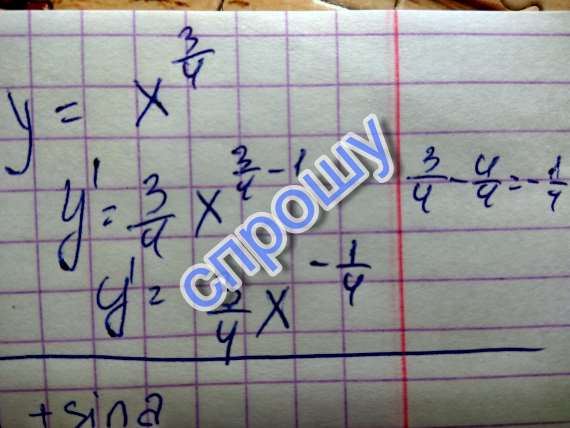 y = x^(3/4)
y' = 3/4 x^(3/4 - 1)
3/4 - 4/4 = -1/4
y' = 3/4 x^(-1/4)
спрошу
+ sin a